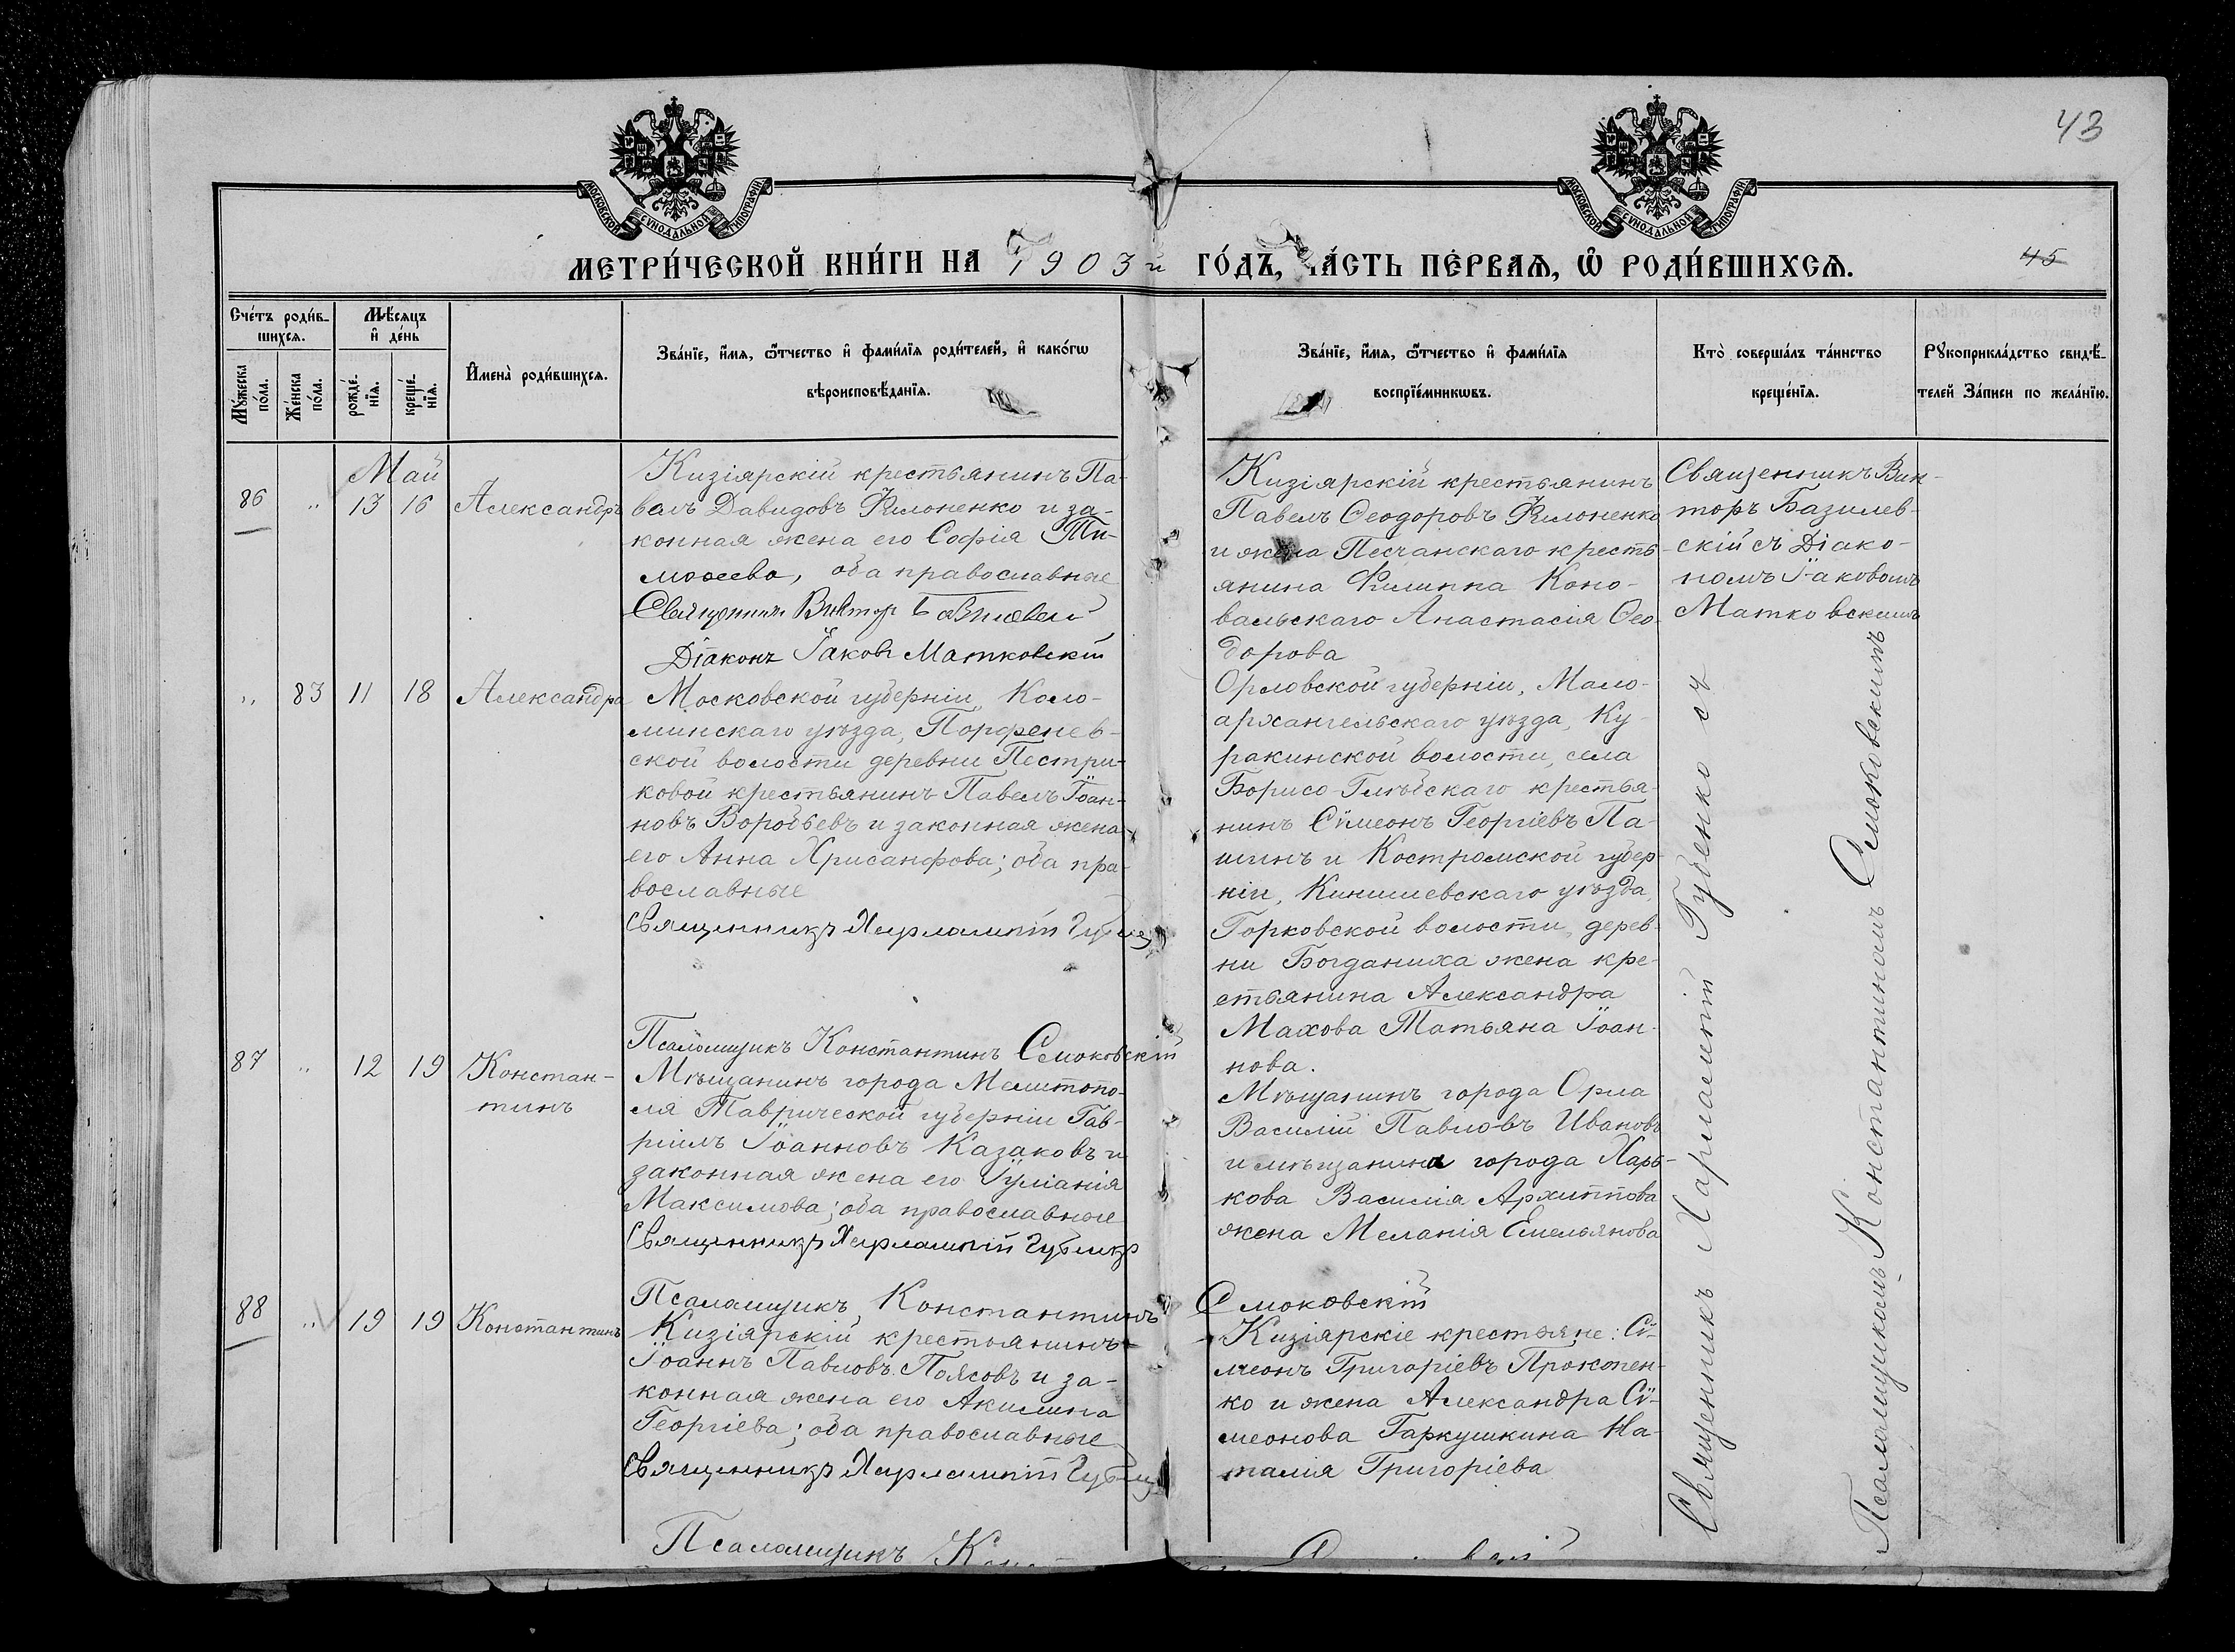 43
МОСКОВСКОЙ СУНОДАЛЬНОЙ ТИПОГРАФІИ
МОСКОВСКОЙ СУНОДАЛЬНОЙ ТИПОГРАФІИ
МЕТРИ́ЧЕСКОЙ КНИ́ГИ НА 1903й ГО́ДЪ, ЧА́СТЬ ПЕ́РВАѦ, Ѡ҆ РОДИ́ВШИХСѦ.
45
Сче́тъ роди́в-
шихся.
Мѣ́сяцъ
и҆ де́нь
Мꙋ́жеска по́ла.
Же́нска по́ла.
рожде́-
нїя.
креще́-
нїя.
И҆мена̀ роди́вшихся.
Зва́нїе, и҆́мя, ѻ҆́тчество и҆ фами́лїя роди́телей, и҆ како́гѡ
вѣроисповѣ́данїя.
Зва́нїе, и҆́мя, ѻ҆́тчество и҆ фами́лїя
воспрїе́мникѡвъ.
Кто̀ соверша́лъ та́инство
креще́нїя.
Рꙋкоприкла́дство свидѣ́-
телей За́писи по жела́нїю.
Май
86 „ 13 16 Александръ
Кизіярскій крестьянинъ Па-
велъ Давидовъ Филоненко и за-
конная жена его Софія Ти-
моѳеева, оба православные
Священникъ Виктор Базилевскій
Діаконъ Іаковъ Матковскій
Кизіярскій крестьянинъ
Павелъ Ѳеодоровъ Филоненко
и жена Песчанскаго кресть-
янина Филиппа Коно-
вальскаго Анастасія Ѳео-
дорова
Священникъ Вик-
торъ Базилев-
скій съ Діако-
номъ Іаковомъ
Матковскимъ
„ 83 11 18 Александра
Московской губерніи, Коло-
минскаго уѣзда, Порфенев-
ской волости деревни Пестри-
ковой крестьянинъ Павелъ Іоан-
новъ Воробьевъ и законная жена
его Анна Хрисанфова; оба пра-
вославные
Священникъ Харлампій Губенко
Псаломщикъ Константинъ Смоковскій
Орловской губерніи, Мало-
архангельскаго уѣзда, Ку-
ракинской волости, села
Борисо-Глѣбскаго крестья-
нинъ Симеонъ Георгіевъ Па-
шинъ и Костромской губер-
ніи, Кинишевскаго уѣзда,
Горковской волости, дерев-
ни Богданиха жена кре-
стьянина Александра
Махова Татьяна Іоан-
нова.
87 „ 12 19 Констан-
тинъ
Мѣщанинъ города Мелитопо-
ля Таврической губерніи Гав-
ріилъ Іоанновъ Казаковъ и
законная жена его Іуліанія
Максимова; оба православные
Священникъ Харлампій Губенко
Псаломщикъ Константинъ Смоковскій
Мѣщанинъ города Орла
Василій Павловъ Ивановъ
и мѣщанина города Харь-
кова Василія Архиппова
жена Меланія Емельянова
88 „ 19 19 Константинъ
Кизіярскій крестьянинъ
Іоаннъ Павловъ Поясовъ и за-
конная жена его Акилина
Георгіева; оба православные
Священникъ Харлампій Губенко
Псаломщикъ
Кизіярскіе крестьяне: Си-
меонъ Григоріевъ Прокопен-
ко и жена Александра Си-
меонова Гаркушкина На-
талія Григоріева
Священникъ Харлампій Губенко съ
Псаломщикомъ Константиномъ Смоковскимъ